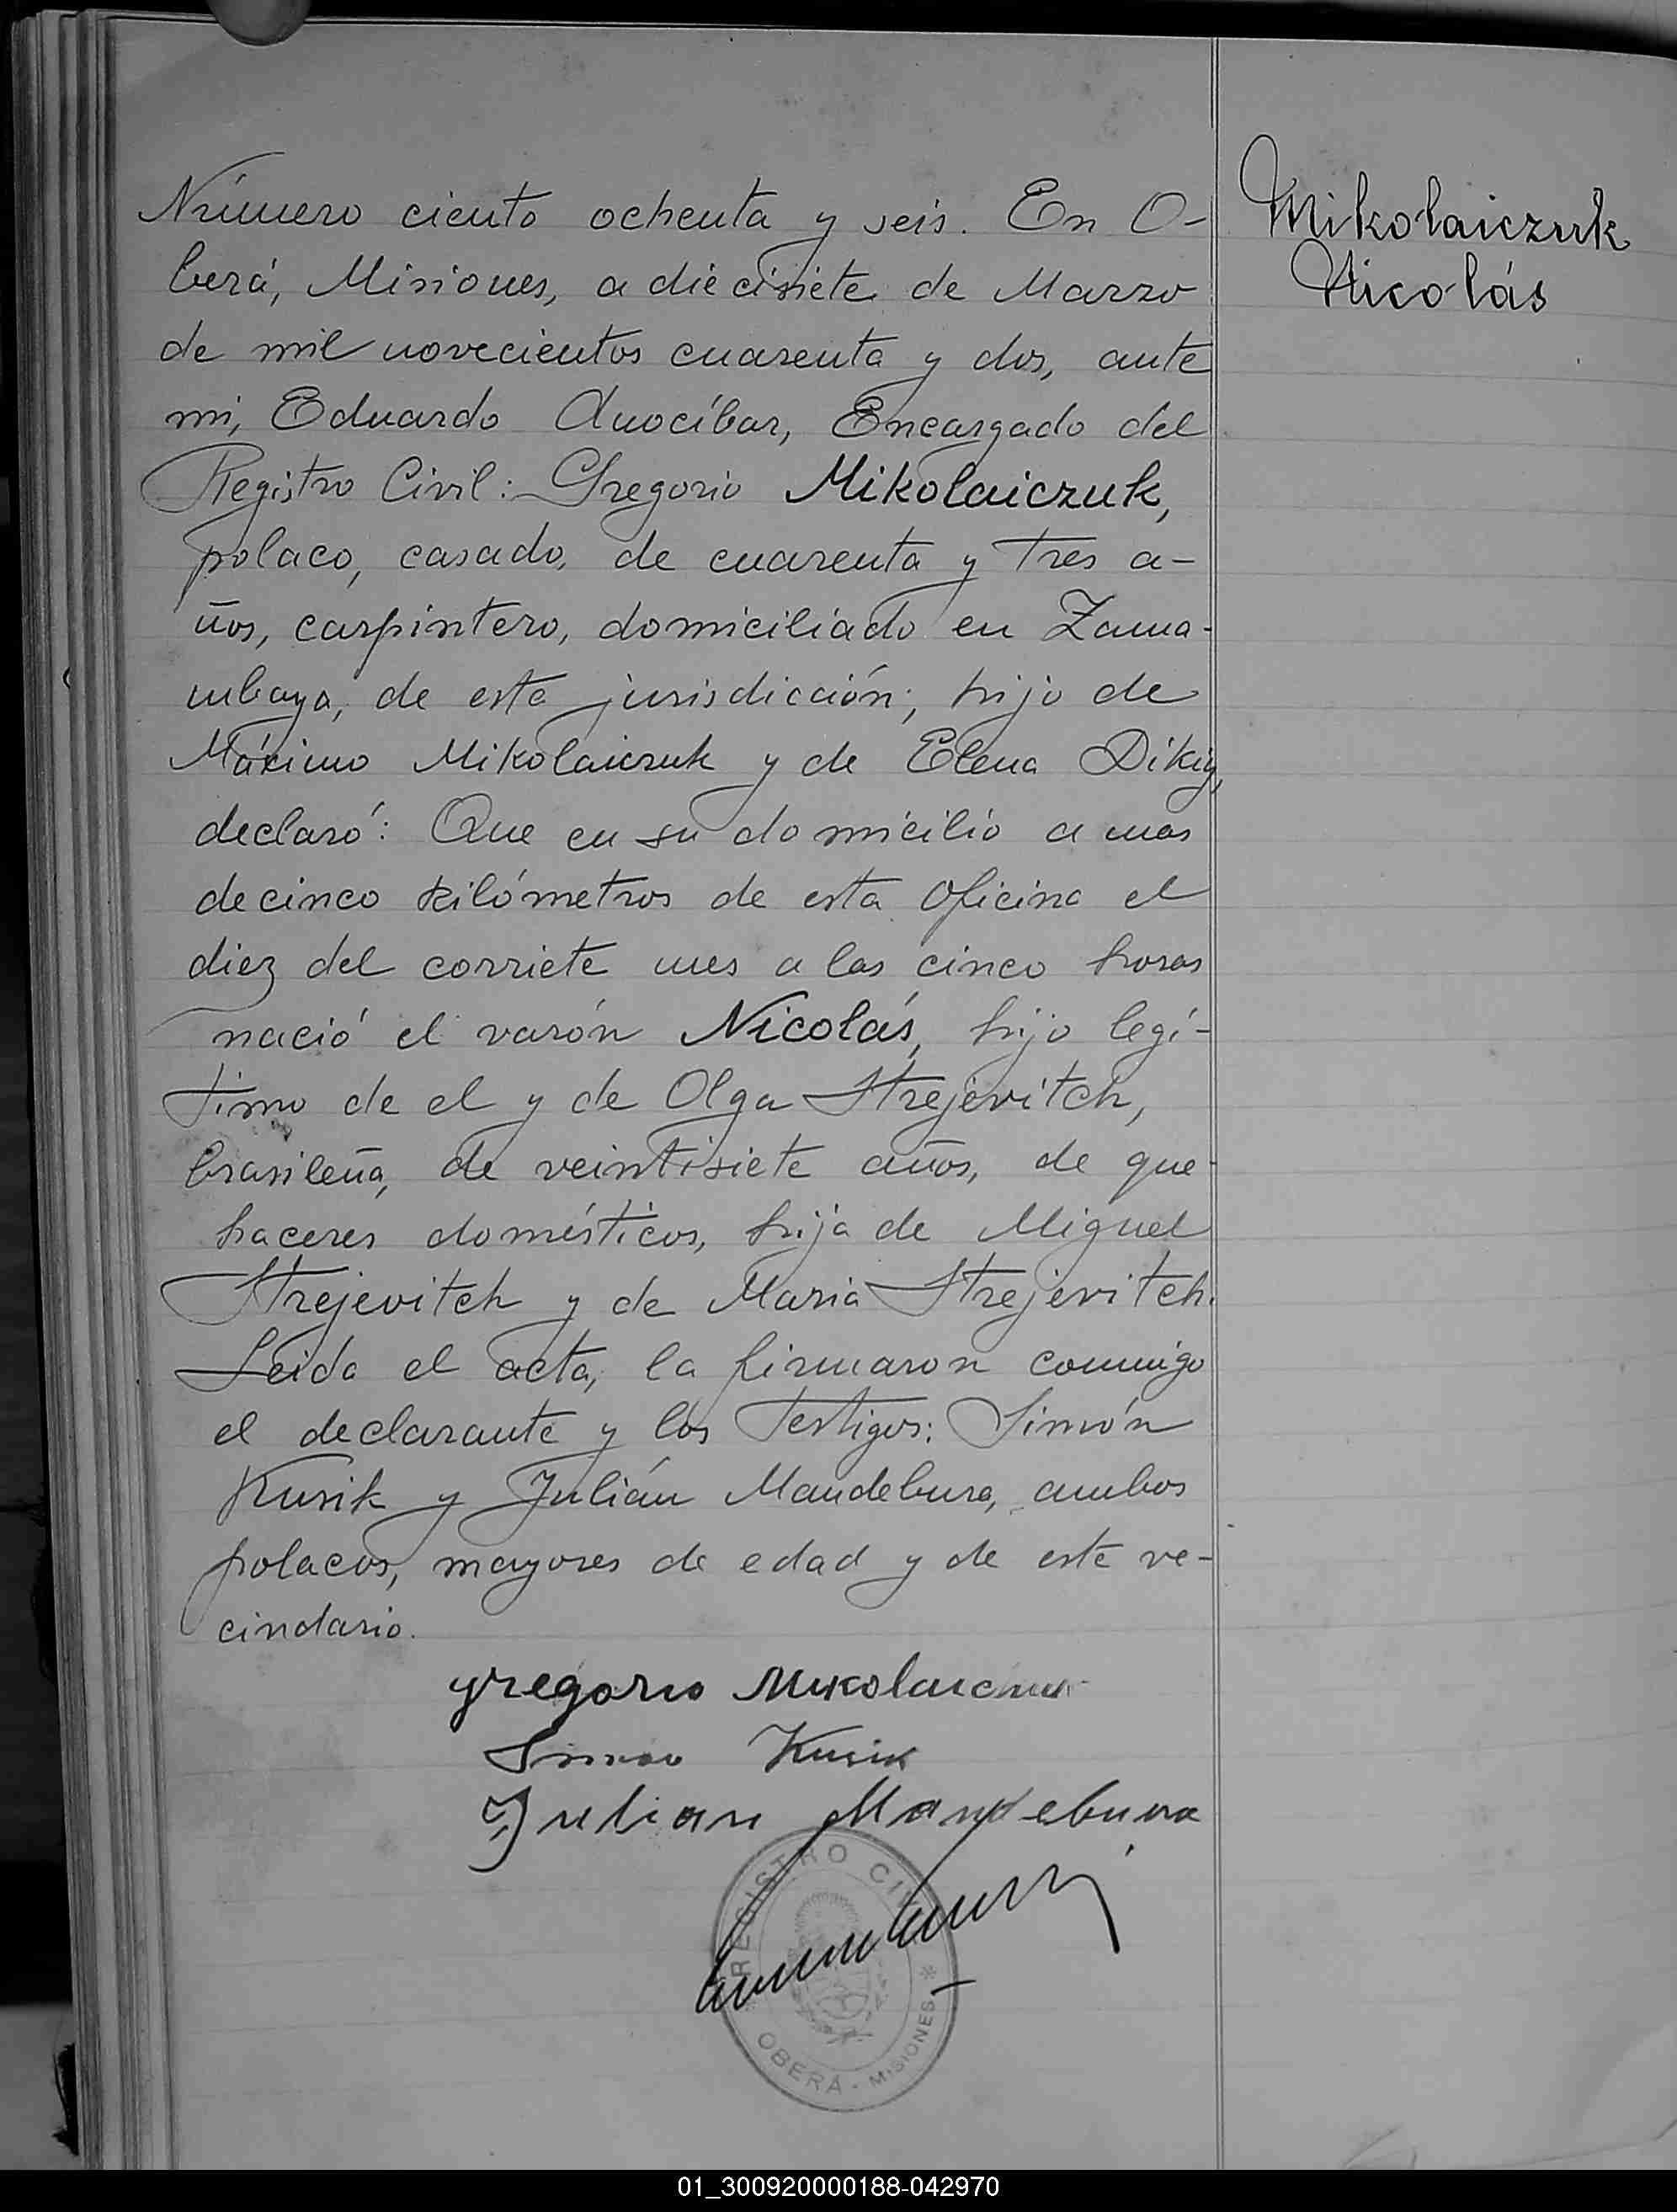 Número ciento ochenta y seis. En O-
berá, Misiones, a diecisiete de Marzo
de mil novecientos cuarenta y dos, ante
mi, Eduardo Anocíbar, Encargado del
Registro Civil: Gregorio Mikolaiczuk,
polaco, casado, de cuarenta y tres a-
ños, carpintero, domiciliado en Zama-
mbaya, de esta jurisdicción; hijo de
Máximo Mikolaiczuk y de Elena Dikiy,
declaró: Que en su domicilio a mas
de cinco kilómetros de esta oficina el
diez del corriete mes a las cinco horas
nació el varón Nicolás, hijo legí-
timo de el y de Olga Strejevitch,
brasileña, de veintisiete años, de que-
haceres domésticos, hija de Miguel
Strejevitch y de Maria Strejevitch.
Leida el acta, la firmaron conmigo
el declarante y los testigos: Simón
Kusik y Julián Mandebura, ambos
polacos, mayores de edad y de este ve-
cindario.
Mikolaiczuk
Nicolás
gregorio Mikolaichuk
Simon Kusik
Julian Mandebura
REGISTRO CIVIL
OBERÁ - MISIONES
01_300920000188-042970